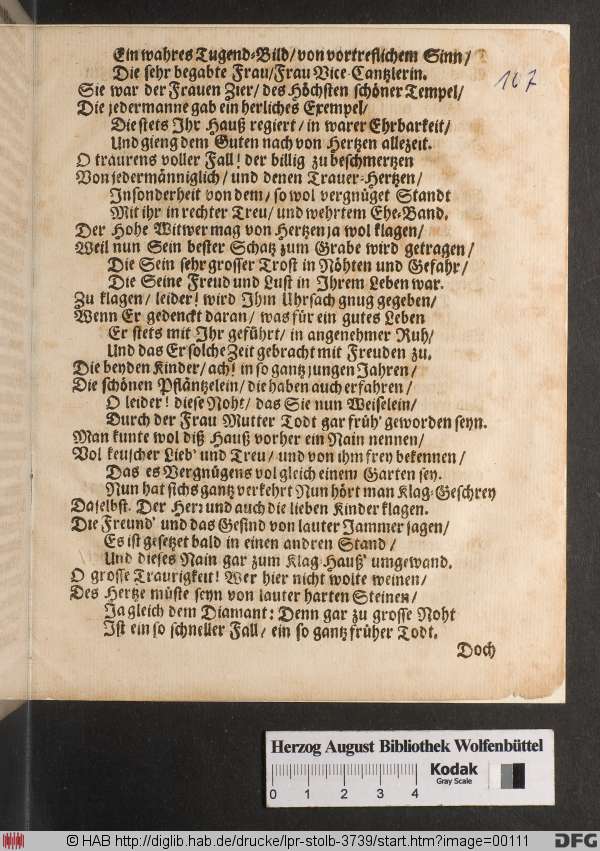 Ein wahres Tugend-Bild/ von vortreflichem Sinn/
Die sehr begabte Frau/ Frau Vice-Cantzlerin.
107
Sie war der Frauen Zier/ des Höchsten schöner Tempel/
Die jedermanne gab ein herliches Exempel/
Die stets Ihr Hauß regiert/ in warer Ehrbarkeit/
Und gieng dem Guten nach von Hertzen allezeit.
O traurens voller Fall! der billig zu beschmertzen
Von jedermänniglich/ und denen Trauer-Hertzen/
Insonderheit von dem/ so wol vergnüget Standt
Mit ihr in rechter Treu/ und wehrtem Ehe-Band.
Der Hohe Witwer mag von Hertzen ja wol klagen/
Weil nun Sein bester Schatz zum Grabe wird getragen/
Die Sein sehr grosser Trost in Nöhten und Gefahr/
Die Seine Freud und Lust in Ihrem Leben war.
Zu klagen/ leider! wird Ihm Uhrsach gnug gegeben/
Wenn Er gedenckt daran/ was für ein gutes Leben
Er stets mit Ihr geführt/ in angenehmer Ruh/
Und das Er solche Zeit gebracht mit Freuden zu.
Die beyden Kinder/ ach! in so gantz jungen Jahren/
Die schönen Pfläntzelein/ die haben auch erfahren/
O leider! diese Noht/ das Sie nun Weiselein/
Durch der Frau Mutter Todt gar früh' geworden seyn.
Man kunte wol diß Hauß vorher ein Nain nennen/
Vol keuscher Lieb' und Treu/ und von ihm frey bekennen/
Das es Vergnügens vol gleich einem Garten sey.
Nun hat sichs gantz verkehrt Nun hört man Klag-Geschrey
Daselbst. Der Herr und auch die lieben Kinder klagen.
Die Freund' und das Gesind von lauter Jammer sagen/
Es ist gesetzet bald in einen andren Stand/
Und dieses Nain gar zum Klag-Hauß' umgewand.
O grosse Traurigkeit! Wer hier nicht wolte weinen/
Des Hertze müste seyn von lauter harten Steinen/
Ja gleich dem Diamant: Denn gar zu grosse Noht
Ist ein so schneller Fall/ ein so gantz früher Todt.
Doch
Herzog August Bibliothek Wolfenbüttel
0 1 2 3 4
Kodak
Gray Scale
© HAB http://diglib.hab.de/drucke/lpr-stolb-3739/start.htm?image=00111
DFG